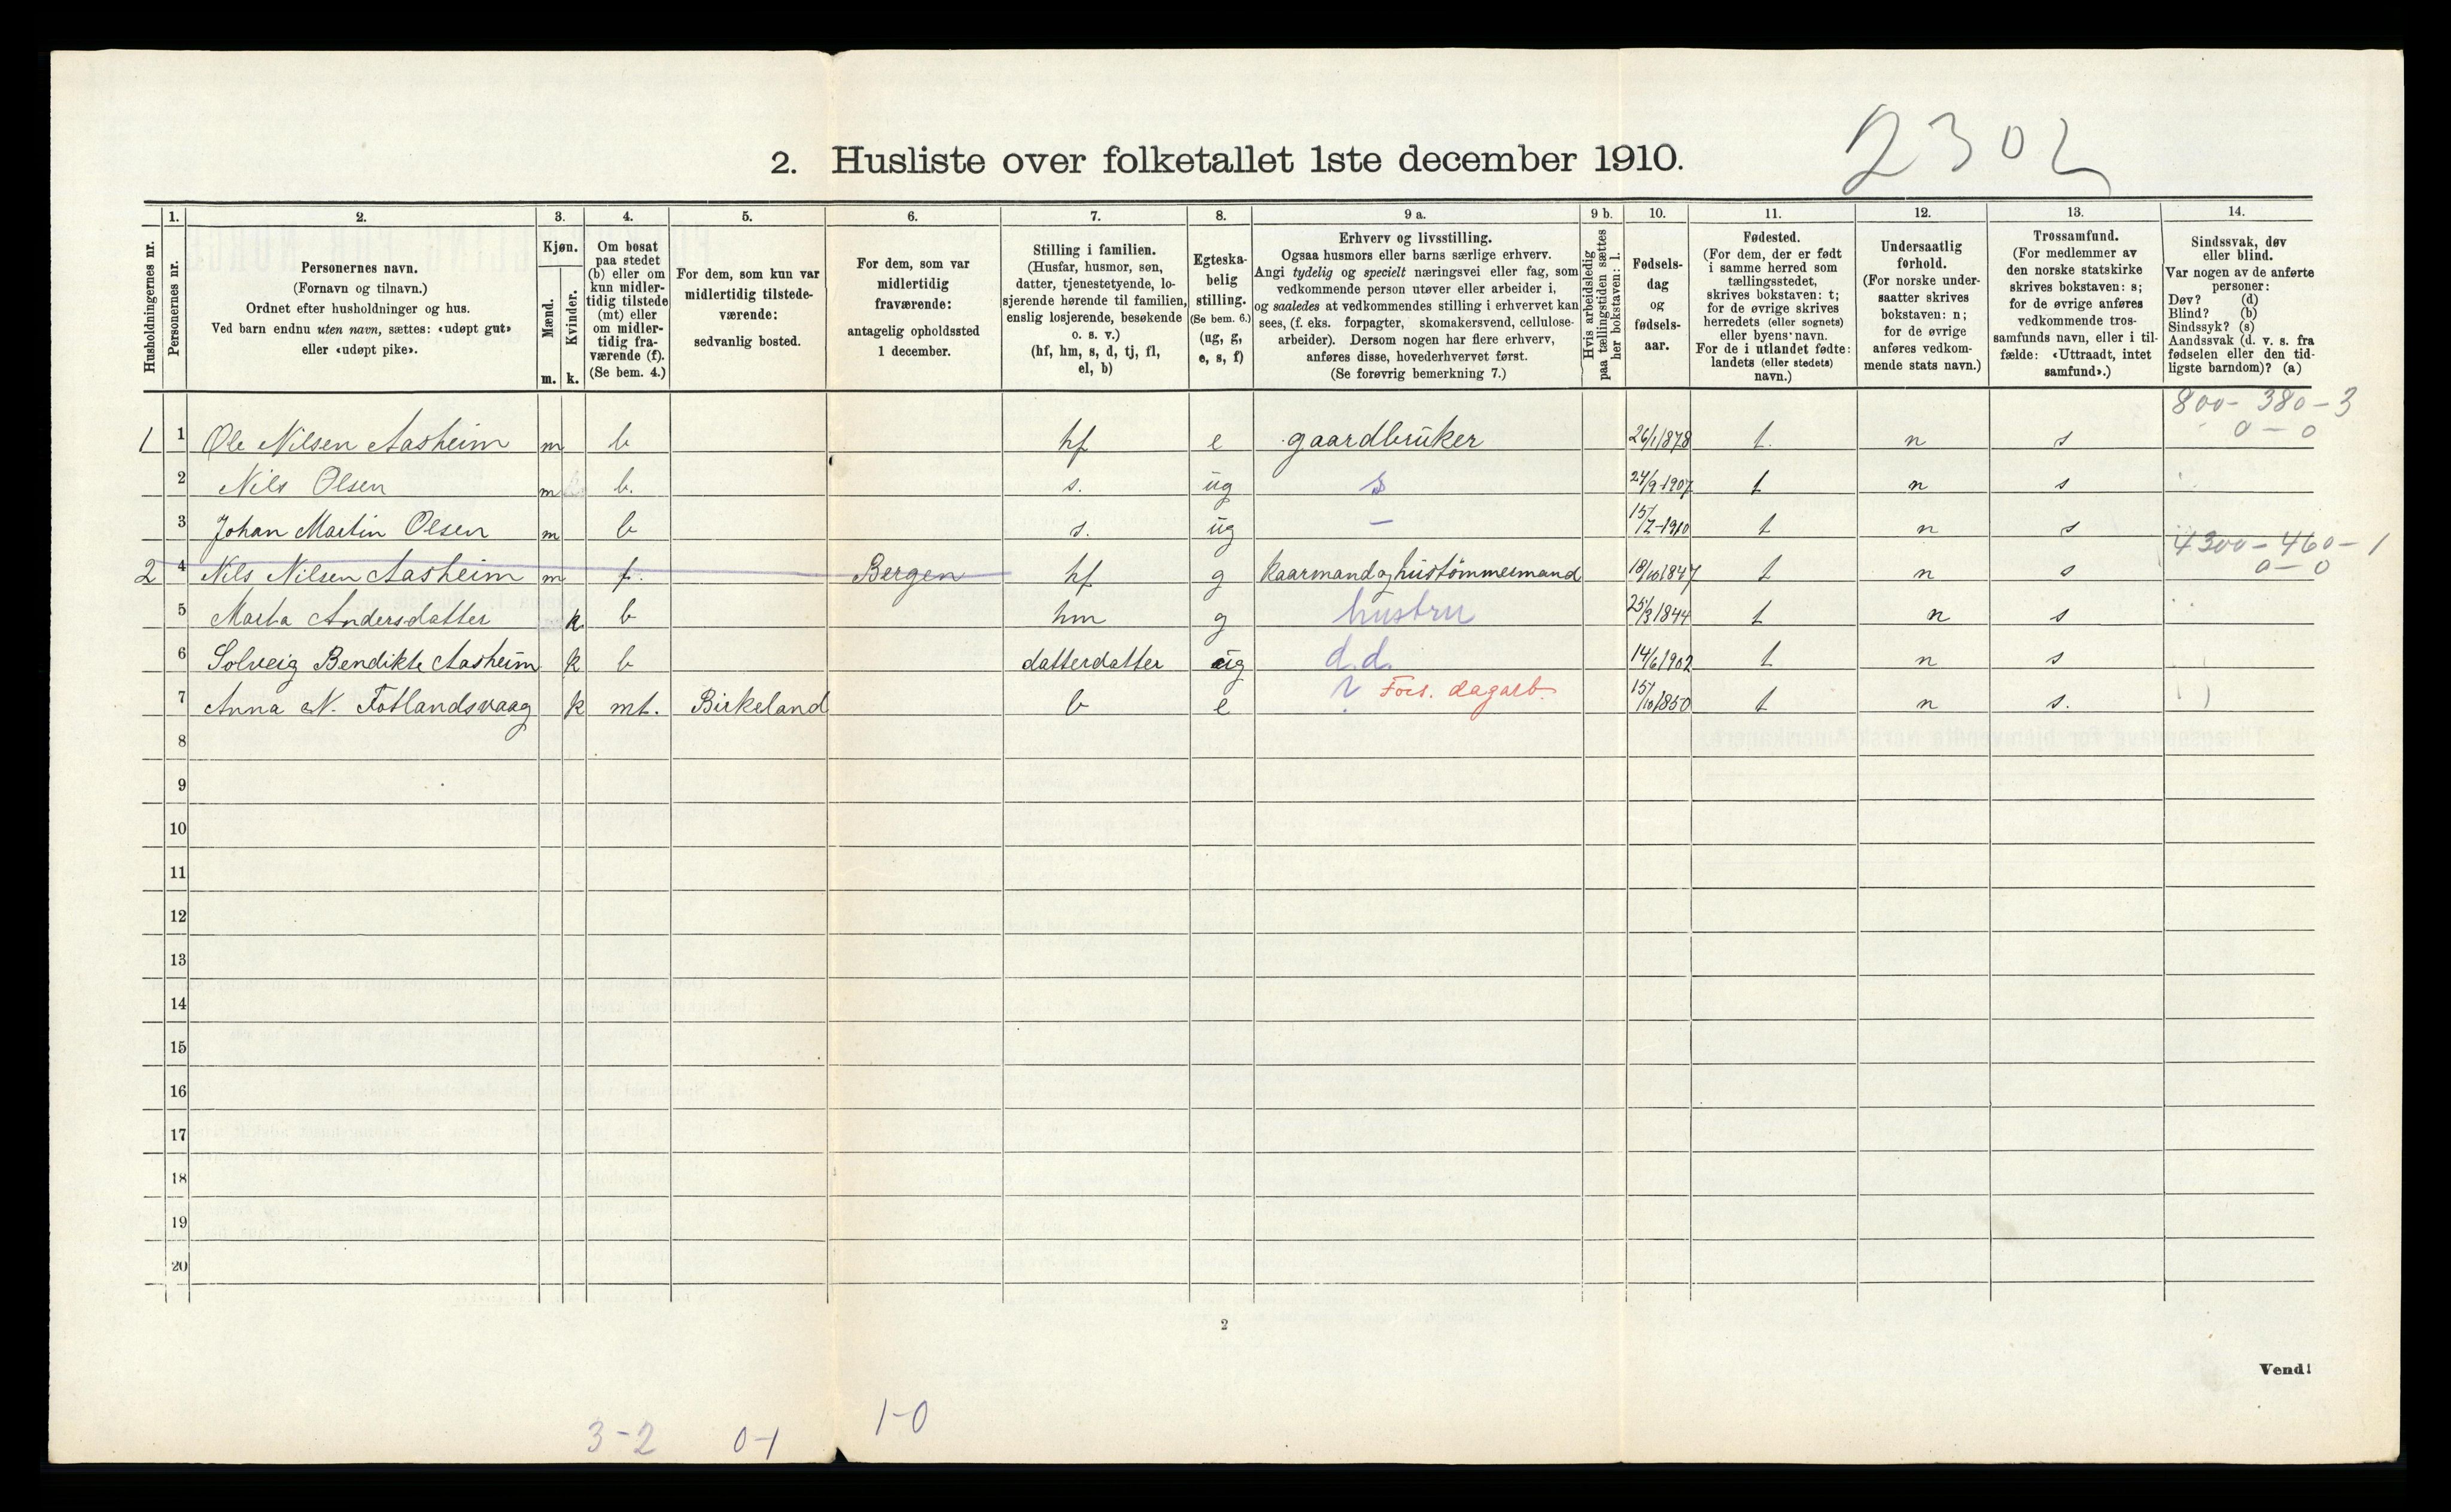 2302
2. Husliste over folketallet 1ste december 1910.
1. 2. 3. 4. 5. 6. 7. 8. 9 a. 9 b. 10. 11. 12. 13. 14.
Husholdningernes nr.
Personernes nr.
Personernes navn.
(Fornavn og tilnavn.)
Ordnet efter husholdninger og hus.
Ved barn endnu uten navn, sættes: «udøpt gut»
eller «udøpt pike».
Kjøn.
Mænd.
Kvinder.
m. k.
Om bosat
paa stedet
(b) eller om
kun midler-
tidig tilstede
(mt) eller
om midler-
tidig fra-
værende (f).
(Se bem. 4.)
For dem, som kun var
midlertidig tilstede-
værende:
sedvanlig bosted.
For dem, som var
midlertidig
fraværende:
antagelig opholdssted
1 december.
Stilling i familien.
(Husfar, husmor, søn,
datter, tjenestetyende, lo-
sjerende hørende til familien,
enslig losjerende, besøkende
o. s. v.)
(hf, hm, s, d, tj, fl,
el, b)
Egteska-
belig
stilling.
(Se bem. 6.)
(ug, g,
e, s, f)
Erhverv og livsstilling.
Ogsaa husmors eller barns særlige erhverv.
Angi tydelig og specielt næringsvei eller fag, som
vedkommende person utøver eller arbeider i,
og saaledes at vedkommendes stilling i erhvervet kan
sees, (f. eks. forpagter, skomakersvend, cellulose-
arbeider). Dersom nogen har flere erhverv,
anføres disse, hovederhvervet først.
(Se forøvrig bemerkning 7.)
Hvis arbeidsledig
paa tællingstiden sættes
her bokstaven: l.
Fødsels-
dag
og
fødsels-
aar.
Fødested.
(For dem, der er født
i samme herred som
tællingsstedet,
skrives bokstaven: t;
for de øvrige skrives
herredets (eller sognets)
eller byens navn.
For de i utlandet fødte:
landets (eller stedets)
navn.)
Undersaatlig
forhold.
(For norske under-
saatter skrives
bokstaven: n;
for de øvrige
anføres vedkom-
mende stats navn.)
Trossamfund.
(For medlemmer av
den norske statskirke
skrives bokstaven: s;
for de øvrige anføres
vedkommende tros-
samfunds navn, eller i til-
fælde: «Uttraadt, intet
samfund».)
Sindssvak, døv
eller blind.
Var nogen av de anførte
personer:
Døv? (d)
Blind? (b)
Sindssyk? (s)
Aandssvak (d. v. s. fra
fødselen eller den tid-
ligste barndom)? (a)
800 - 380 - 3
0 - 0
1 1 Ole Nilsen Aasheim m b hf e gaardbruker 26/1 1878 t. n s
2 Nils Olsen m b. s. ug s 24/9 1907 t n s
3 Johan Martin Olsen m b s. ug - 15/7-1910 t n s
4300 - 460 - 1
0 - 0
2 4 Nils Nilsen Aasheim m f. Bergen hf g kaarmand og hustømmermand 18/10 1847 t n s
5 Marta Andersdatter k b hm g hustru 25/3 1844 t n s
6 Solveig Bendikte Aasheim k b datterdatter ug d.d. 14/6 1902 t n s
7 Anna N. Fotlandsvaag k mt. Birkeland b e ? Fors. dagarb. 15/10 1850 t n s.
8
9
10
11
12
13
14
15
16
17
18
19
20
2
Vend!
3-2 0-1 1-0